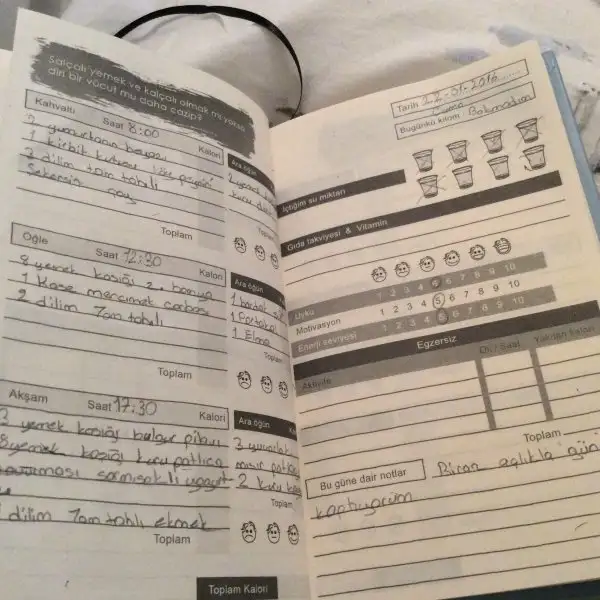 Salçalı yemek ve kalçalı olmak mı yoksa
diri bir vücut mu daha cazip?
Kahvaltı
Saat 8:00
Kalori
2 yumurtanın beyazı
1 kibrit kutusu
2 dilim tam tahıllı
Şekersiz çay
Toplam
Ara öğün
2 yemek
kuru
Toplam
Öğle
Saat 12:30
Kalori
8 yemek kaşığı z. bamya
1 Kase mercimek çorbası
2 dilim Tam tahıllı
Toplam
Ara öğün
1 bardak
1 Portakal
1 Elma
Toplam
Akşam
Saat 17:30
Kalori
3 yemek kaşığı bulgur pilavı
8 yemek kaşığı kuru patlıcan
sarmısaklı yoğurt
dilim Tam tahıllı ekmek
Toplam
Ara öğün
3 yuvarlak
mısır
2 kuru
Toplam
Toplam Kalori
Tarih 22-01-2016
Bugünkü kilom Bakmadım
İçtiğim su miktarı
Gıda takviyesi & Vitamin
Uyku 1 2 3 4 5 6 7 8 9 10
Motivasyon 1 2 3 4 5 6 7 8 9 10
Enerji seviyesi 1 2 3 4 5 6 7 8 9 10
Egzersiz
Aktivite
Dk./ Saat
Yakılan kalori
Toplam
Bu güne dair notlar
Biraz açlıkla gün
kaptıyorum